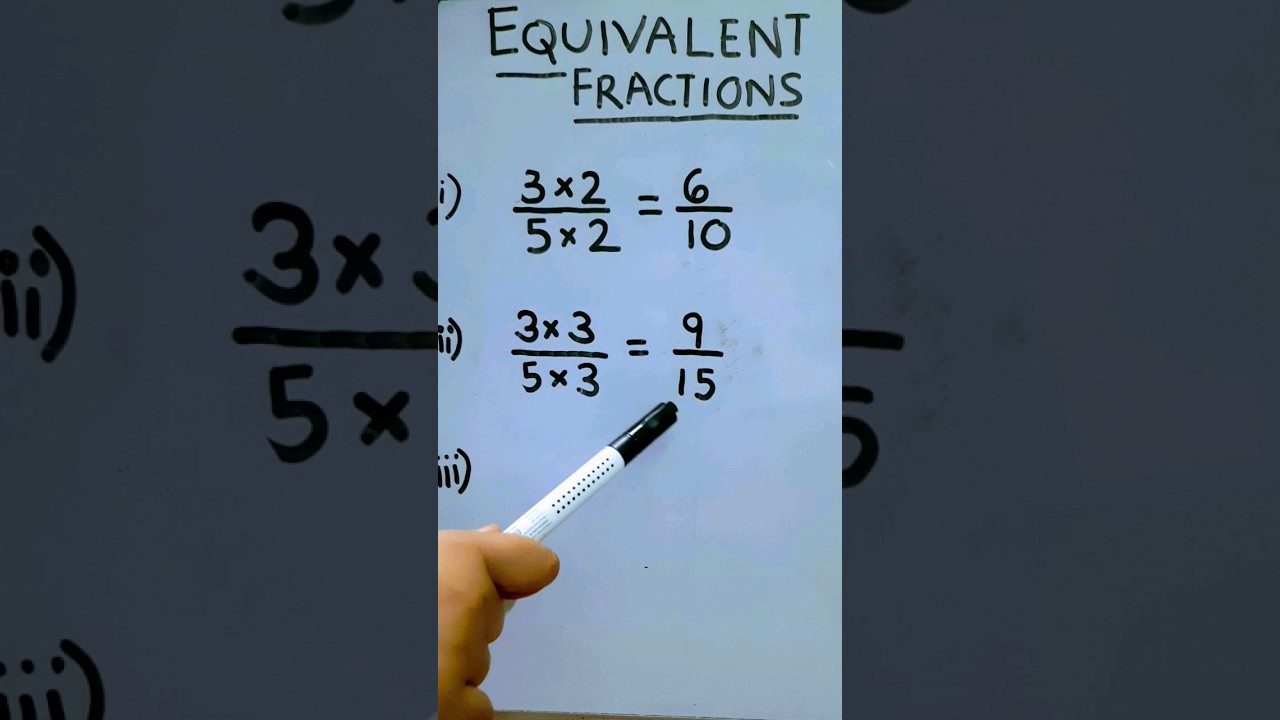 EQUIVALENT
FRACTIONS
i) 3×2 = 6
5×2 10
ii) 3×3 = 9
5×3 15
iii)